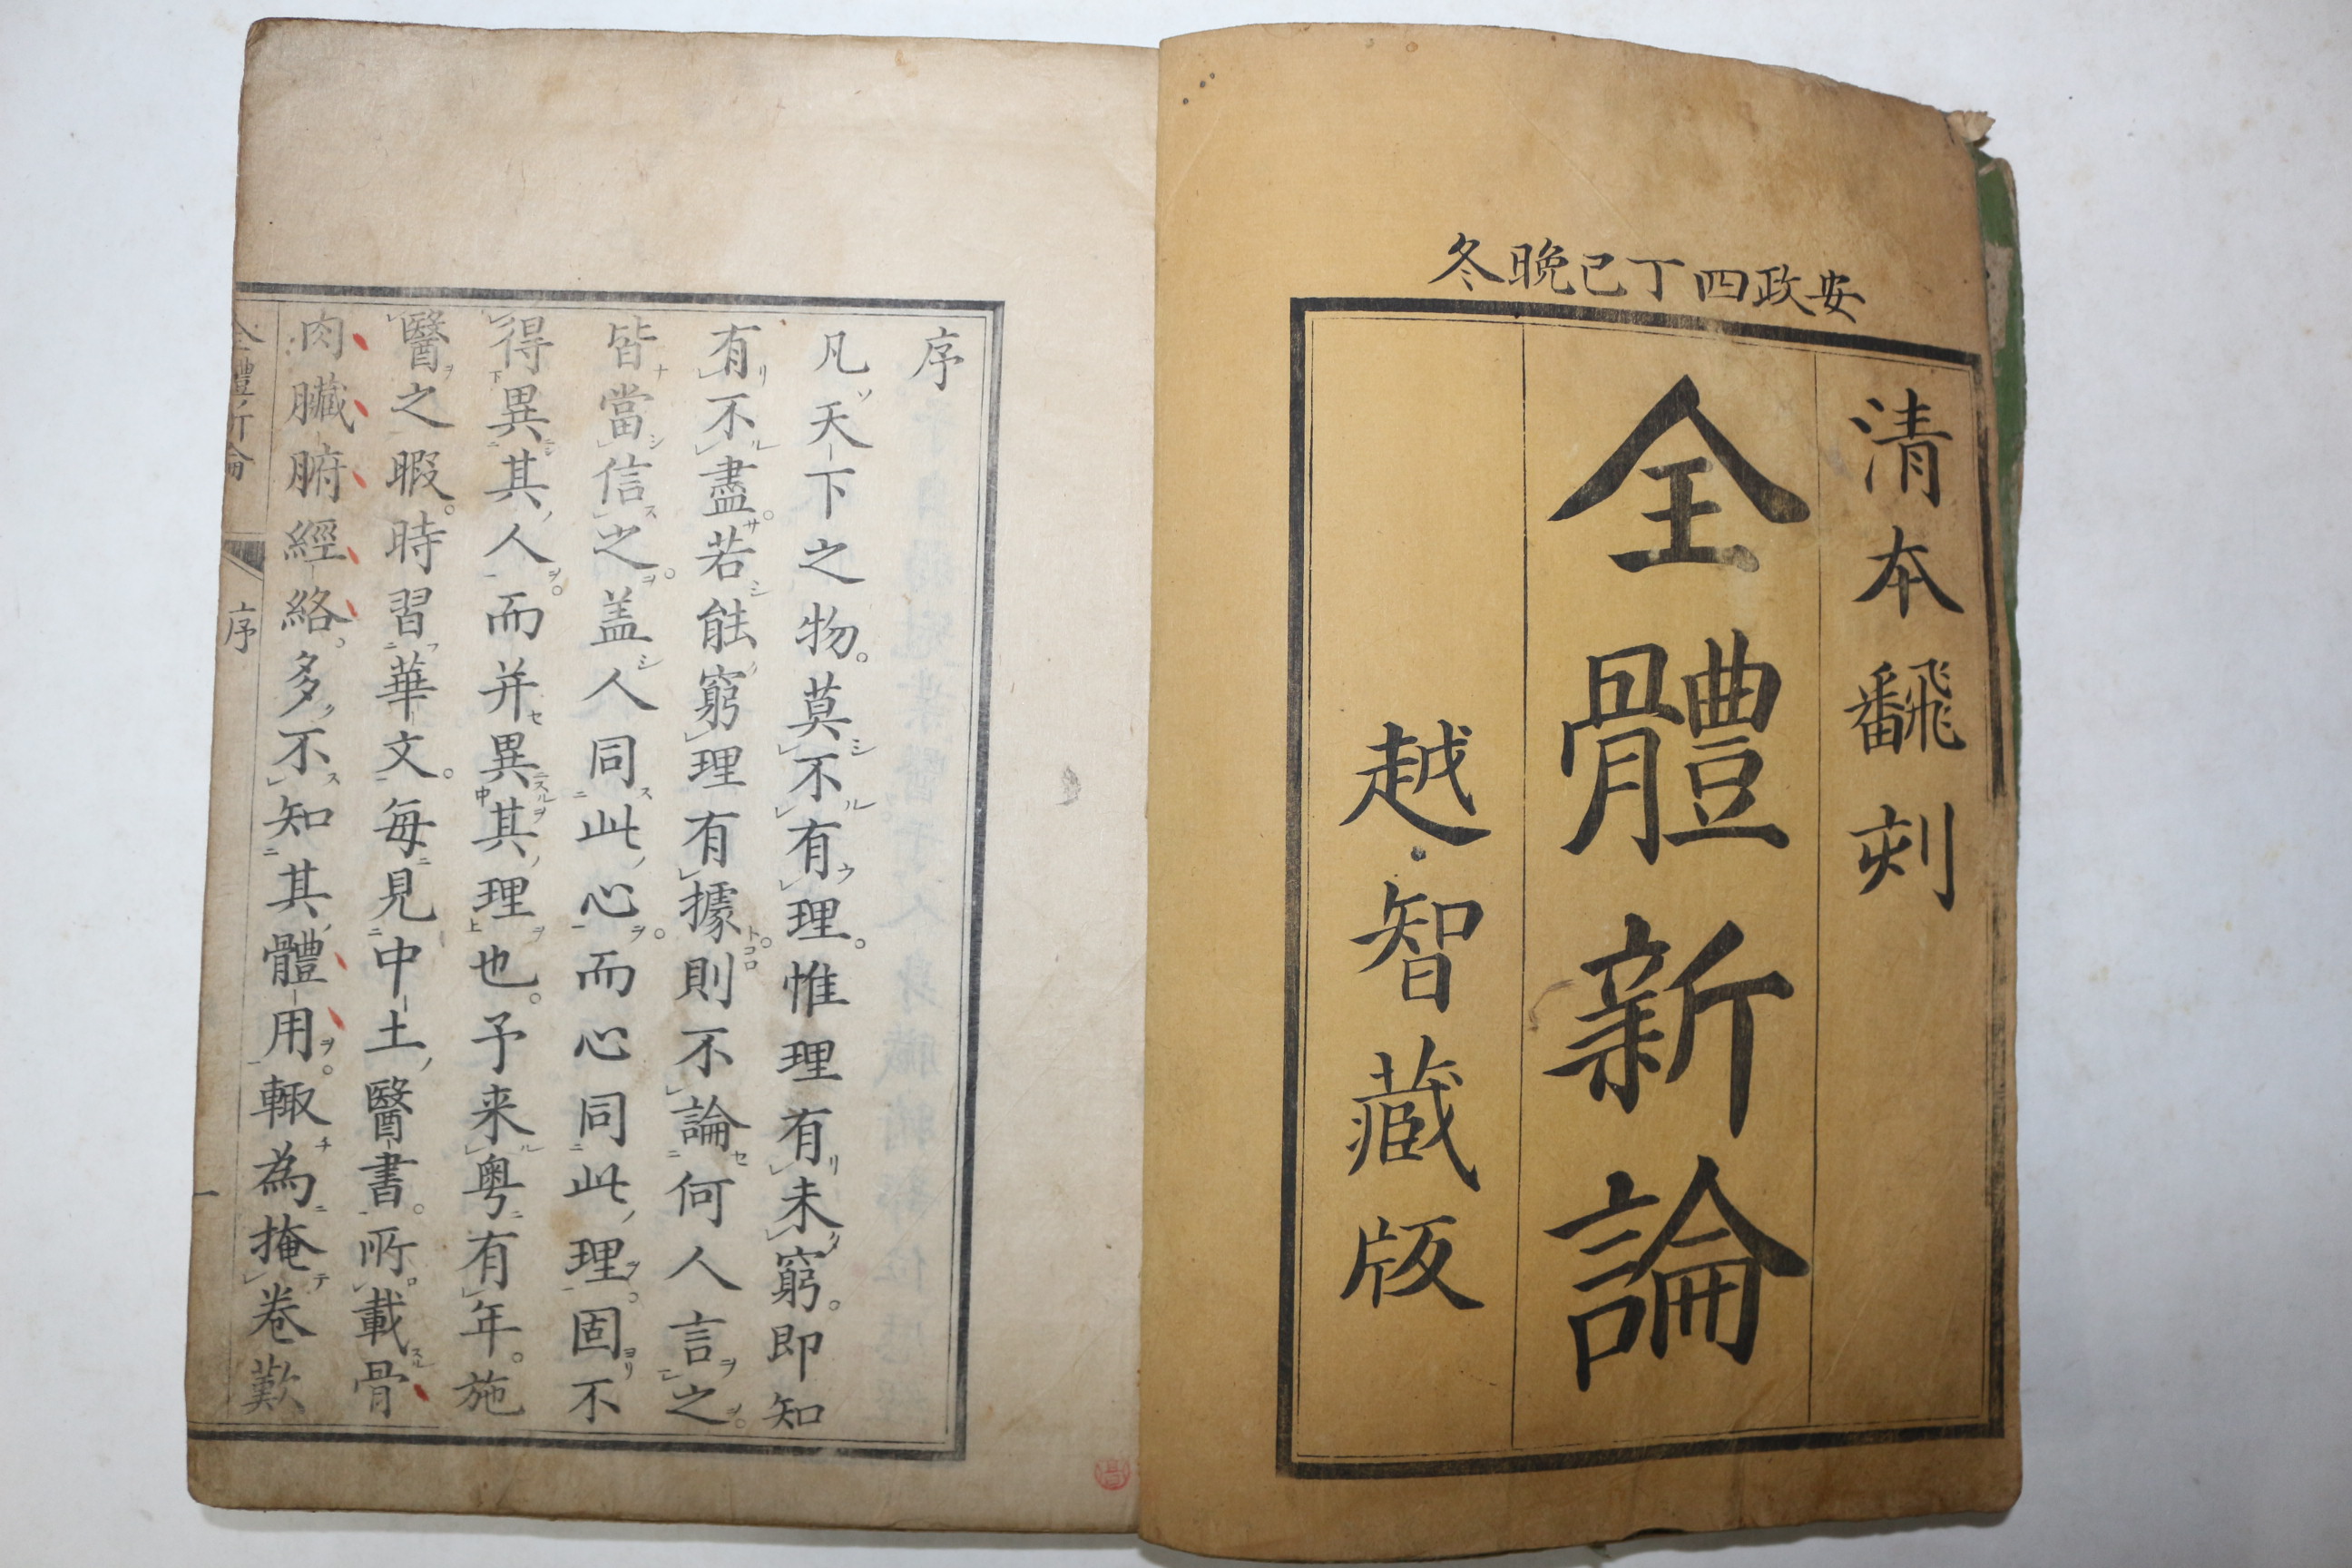 安政四丁巳晩冬
清本飜刻
全體新論
越智藏版
序
凡天下之物。莫不有理。惟理有未窮。即知
有不盡。若能窮理有據。則不論何人言之。
皆當信之。盖人同此心。而心同此理。固不
得異其人。而并異其理也。予来粤有年。施
醫之暇。時習華文。每見中土醫書。所載骨
肉臓腑經絡。多不知其體用。輙為掩卷歎
全體新論 序 一